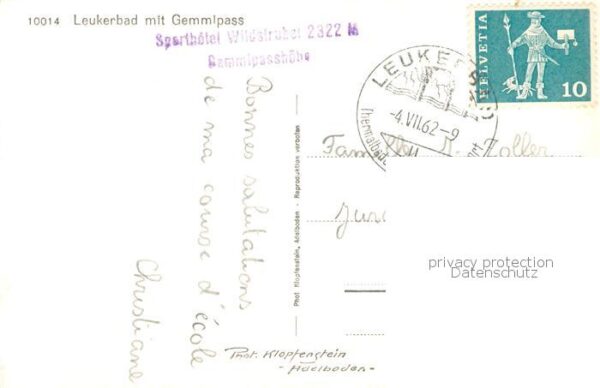 10014 Leukerbad mit Gemmipass
Sporthotel Wildstrubel 2322 M
Gemmipasshöhe
HELVETIA
10
-4.VII.62-9
Bonnes salutations
de ma course d'école
Christiane
Phot Klopfenstein, Adelboden - Reproduktion verboten
Zoller
privacy protection
Datenschutz
Phot. Klopfenstein
- Adelboden -